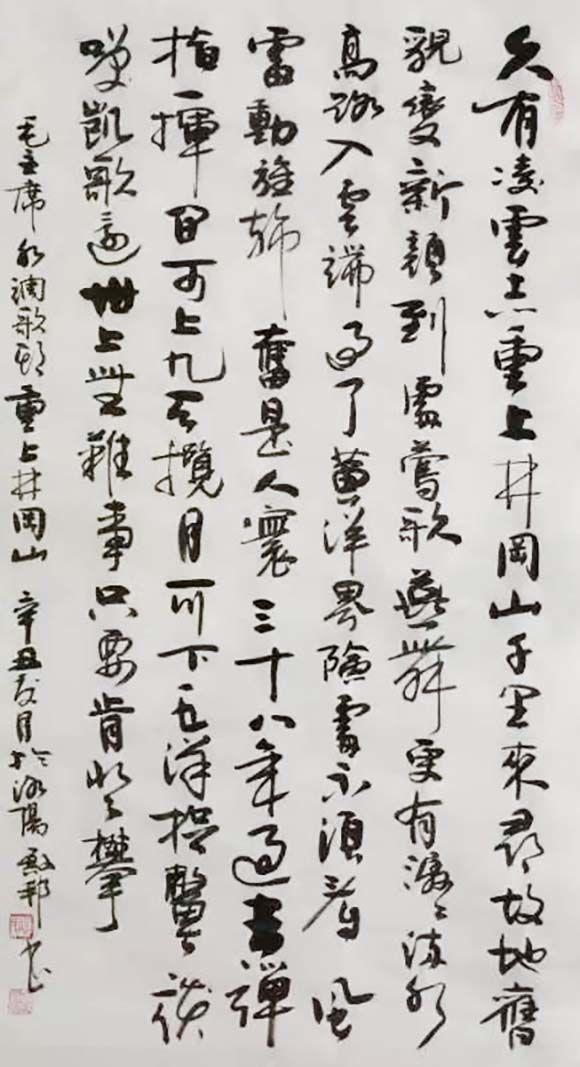 久有凌雲志重上井岡山千里來尋故地舊
貌變新顏到處鶯歌燕舞更有潺〻流水
高路入雲端過了黃洋界險處不須看風
雷動旌奮是人寰三十八年過去彈
指一揮間可上九天攬月可下五洋捉鱉談
咲凱歌還世上無難事只要肯登攀
毛主席水調歌頭重上井岡山辛丑月於陽邦书